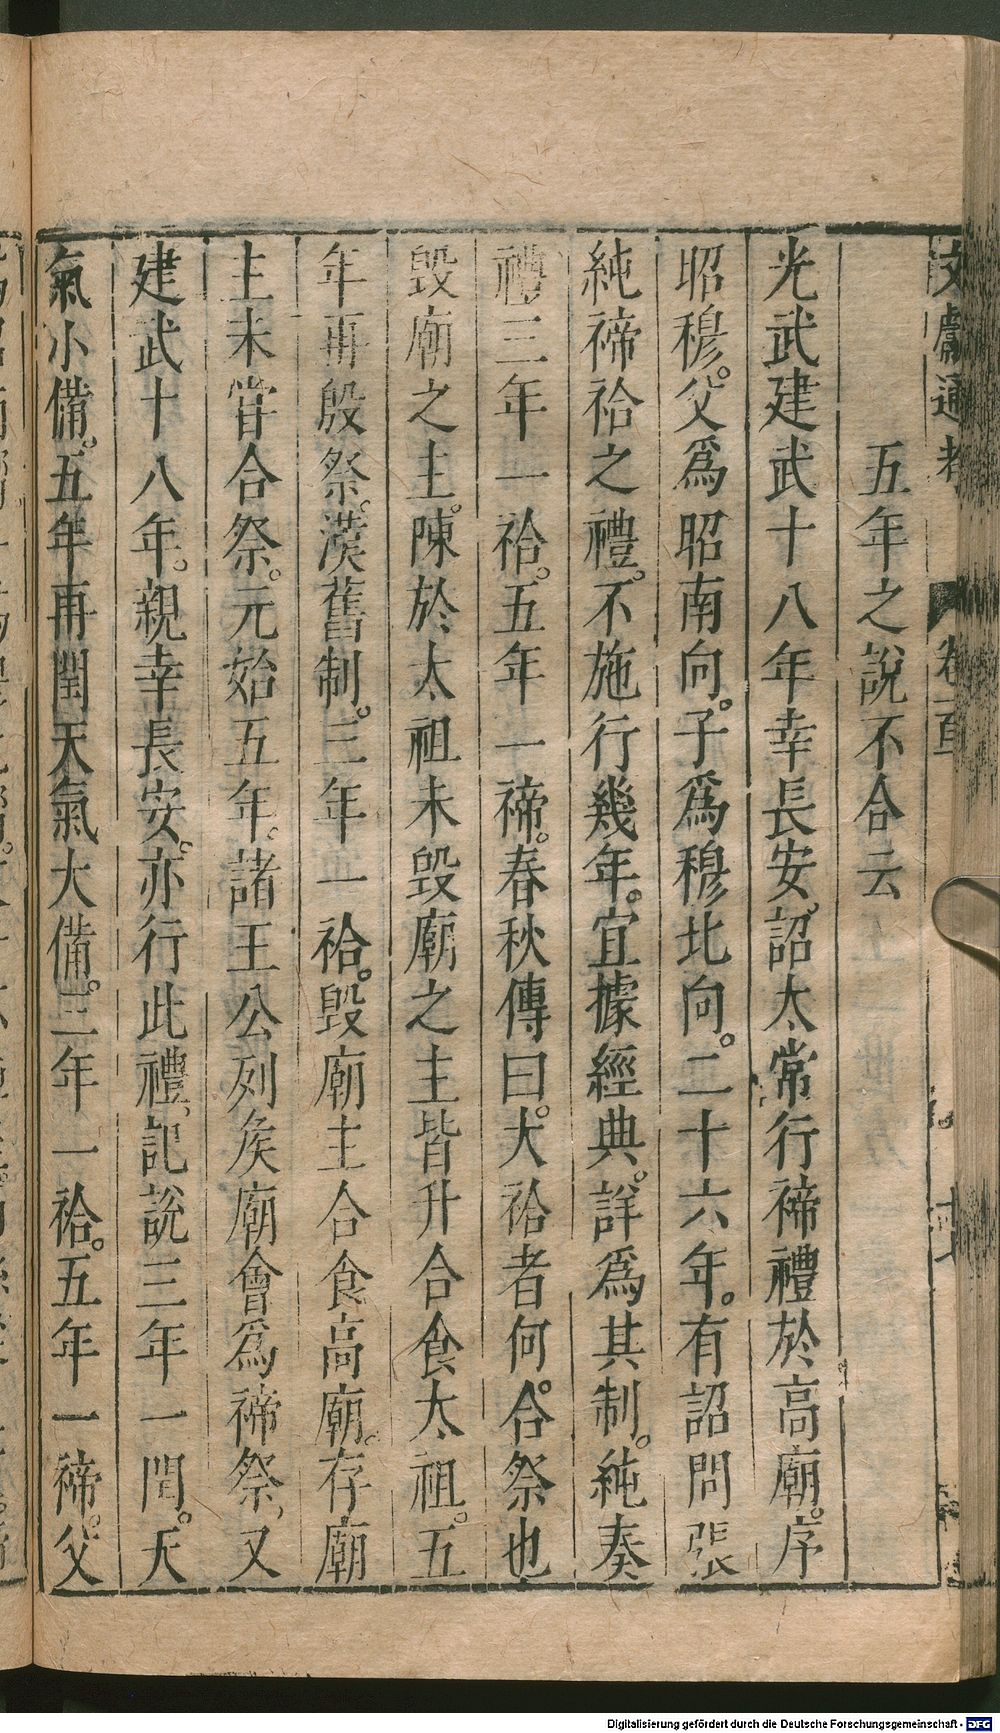 文獻通考 卷一百
五年之說不合云
光武建武十八年幸長安詔太常行禘禮於高廟。序
昭穆。父爲昭南向。子爲穆北向。二十六年。有詔問張
純禘祫之禮。不施行幾年。宜據經典。詳爲其制。純奏
禮三年一祫。五年一禘。春秋傳曰。大祫者何。合祭也
毀廟之主。陳於太祖未毀廟之主皆升合食太祖。五
年再殷祭。漢舊制。三年一祫。毀廟主合食高廟。存廟
主未甞合祭。元始五年。諸王公列矦廟會爲禘祭、又
建武十八年。親幸長安。亦行此禮、記說三年一閏。天
氣小備。五年再閏天氣大備。三年一祫。五年一禘。父
Digitalisierung gefördert durch die Deutsche Forschungsgemeinschaft - DFG